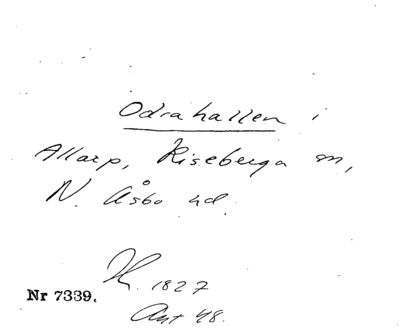 Odrahallen i
Allarp, Riseberga sn,
N. Åsbo hd.
K. 1827
Nr 7339.
Akt 48.